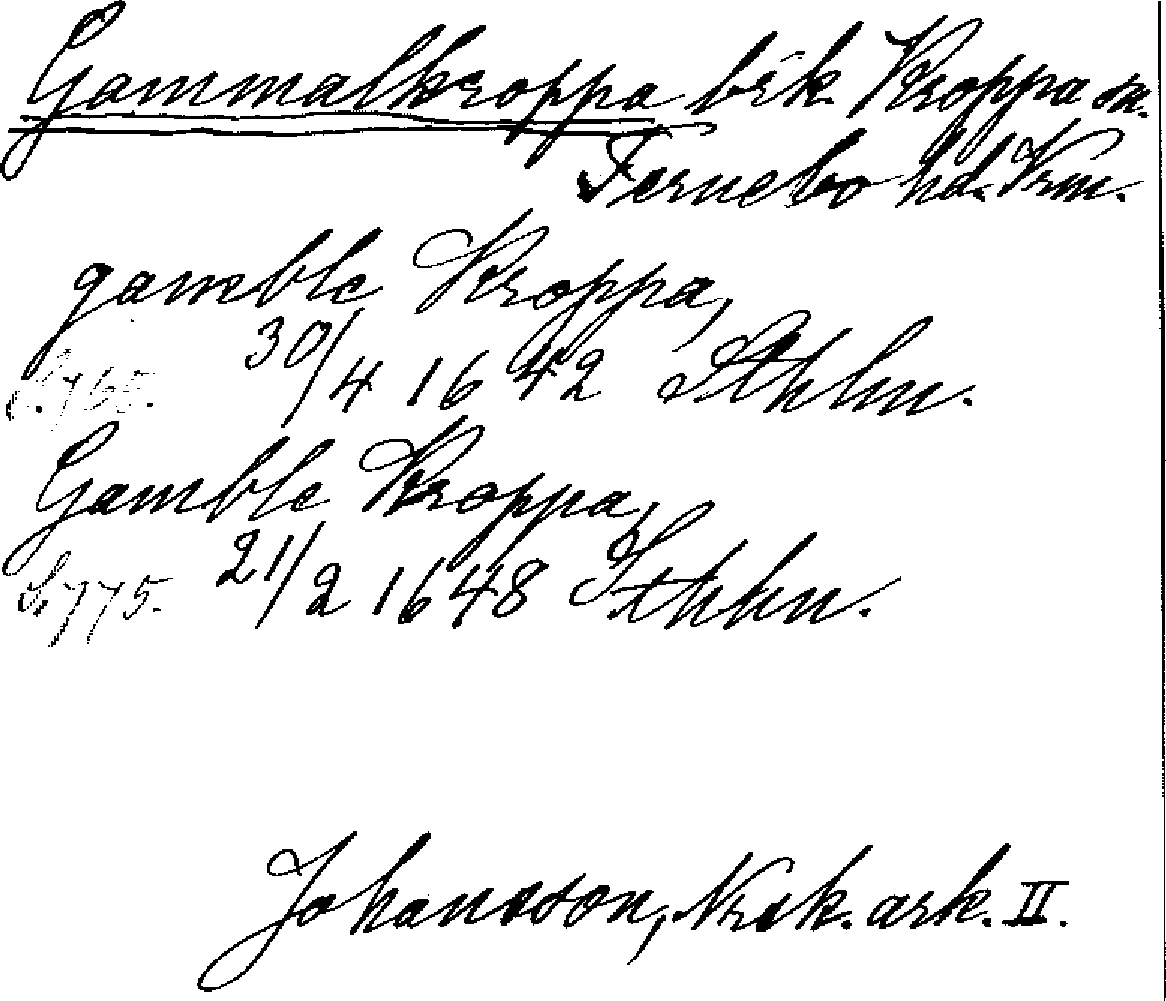 Gammalkroppa brk. Kroppa sn.
Fernebo hd. Vrm.
gamble Kroppa,
S. 765. 30/4 1642 Sthlm.
Gamble Kroppa,
S. 775. 21/2 1648 Sthlm.
Johansson, Nrsk. ark. II.